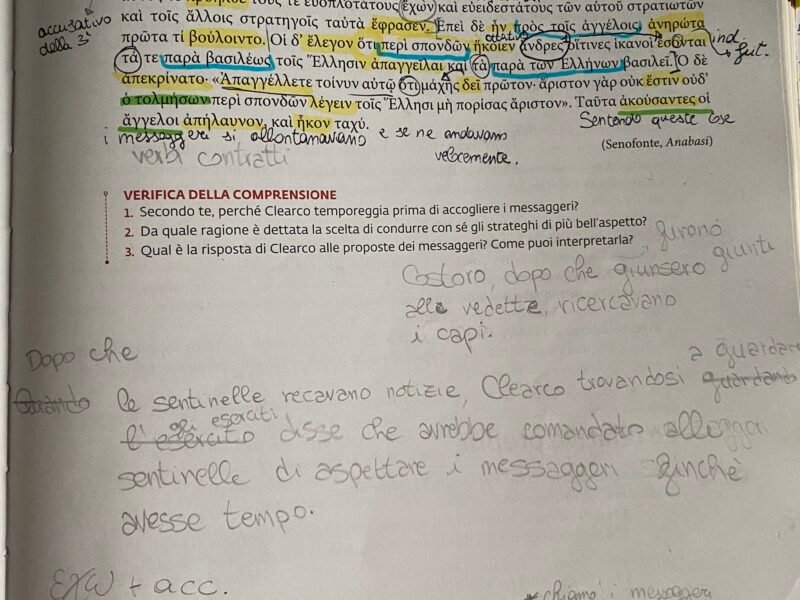 εὐοπλοτάτους ἔχων καὶ εὐειδεστάτους τῶν αὐτοῦ στρατιωτῶν
accusativo
della 3ª
καὶ τοῖς ἄλλοις στρατηγοῖς ταὐτὰ ἔφρασεν. Ἐπεὶ δὲ ἦν πρὸς τοῖς ἀγγέλοις, ἀνηρώτα
πρῶτα τί βούλοιντο. Οἱ δ’ ἔλεγον ὅτι περὶ σπονδῶν ἥκοιεν ἄνδρες οἵτινες ἱκανοὶ ἔσονται
ind.
fut.
τά τε παρὰ βασιλέως τοῖς Ἕλλησιν ἀπαγγεῖλαι καὶ τὰ παρὰ τῶν Ἑλλήνων βασιλεῖ. Ὁ δὲ
ἀπεκρίνατο· «Ἀπαγγέλλετε τοίνυν αὐτῷ ὅτι μάχης δεῖ πρῶτον· ἄριστον γὰρ οὐκ ἔστιν οὐδ’
ὁ τολμήσων περὶ σπονδῶν λέγειν τοῖς Ἕλλησι μὴ πορίσας ἄριστον». Ταῦτα ἀκούσαντες οἱ
ἄγγελοι ἀπήλαυνον, καὶ ἧκον ταχύ.
Sentendo queste cose
i messaggeri si allontanavano e se ne andavano
velocemente.
(Senofonte, Anabasi)
verbi contratti
VERIFICA DELLA COMPRENSIONE
1. Secondo te, perché Clearco temporeggia prima di accogliere i messaggeri?
2. Da quale ragione è dettata la scelta di condurre con sé gli strateghi di più bell’aspetto?
3. Qual è la risposta di Clearco alle proposte dei messaggeri? Come puoi interpretarla?
furono
Costoro, dopo che giunsero giunti
alle vedette, ricercavano
i capi.
Dopo che
a guardare
Quando le sentinelle recavano notizie, Clearco trovandosi guardando
gli eserciti
l'esercito disse che avrebbe comandato alle
sentinelle di aspettare i messaggeri finchè
avesse tempo.
ἔχω + acc.
chiamò i messaggeri